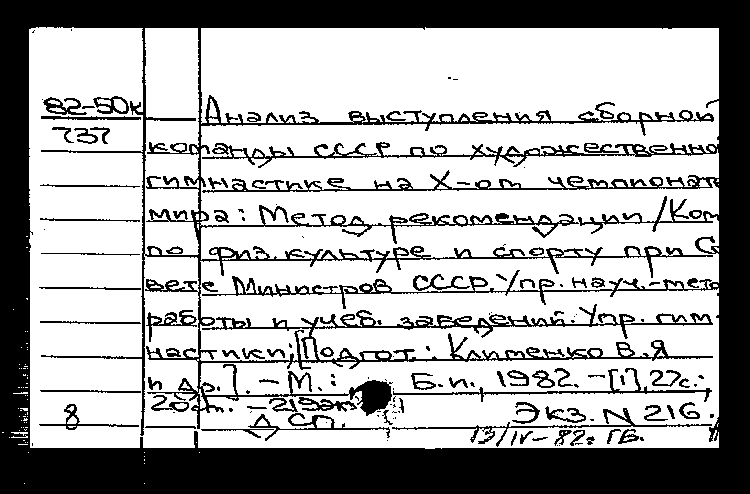 82-50к Анализ выступления сборной
737
команды СССР по художественно
гимнастике на X-ом чемпионате
мира: Метод. рекомендации / Ком
по физ. культуре и спорту при Со
вете Министров СССР. Упр. науч.-метод
работы и учеб. заведений. Упр. гим-
настики; [Подгот.: Клименко В.Я
и др.]. - М.: Б.и., 1982. - [1], 27с.;
20см. - 219эк
8 Д СП. Экз. N 216.
13/IV-82г ГБ.